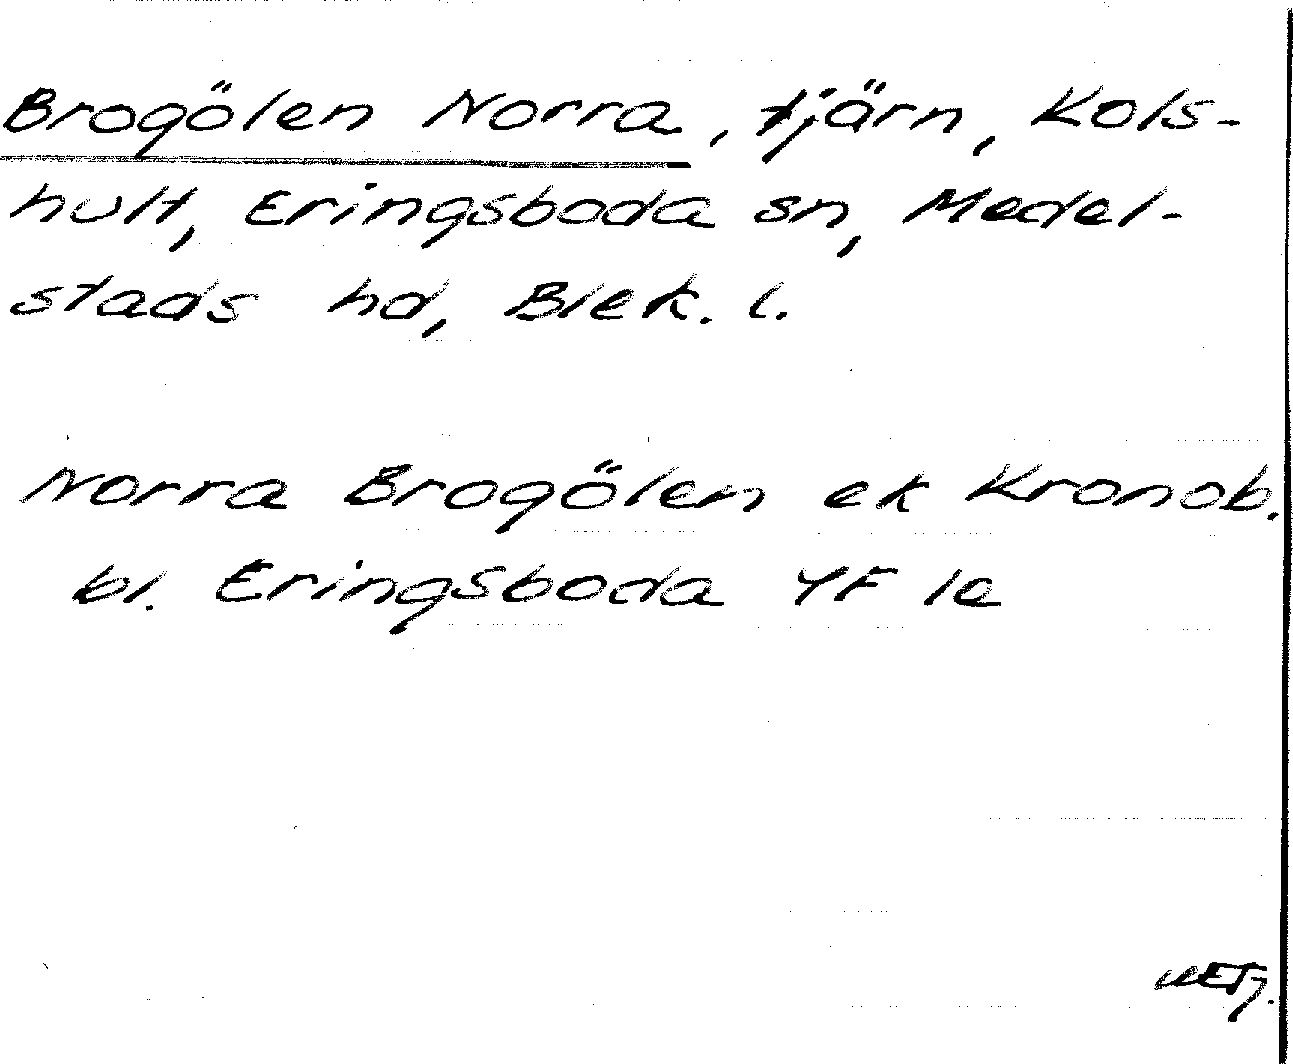 Brogölen Norra, tjärn, Kols-
hult, Eringsboda sn, Medel-
stads hd, Blek. l.
Norra Brogölen ek Kronob.
bl. Eringsboda YF 1e